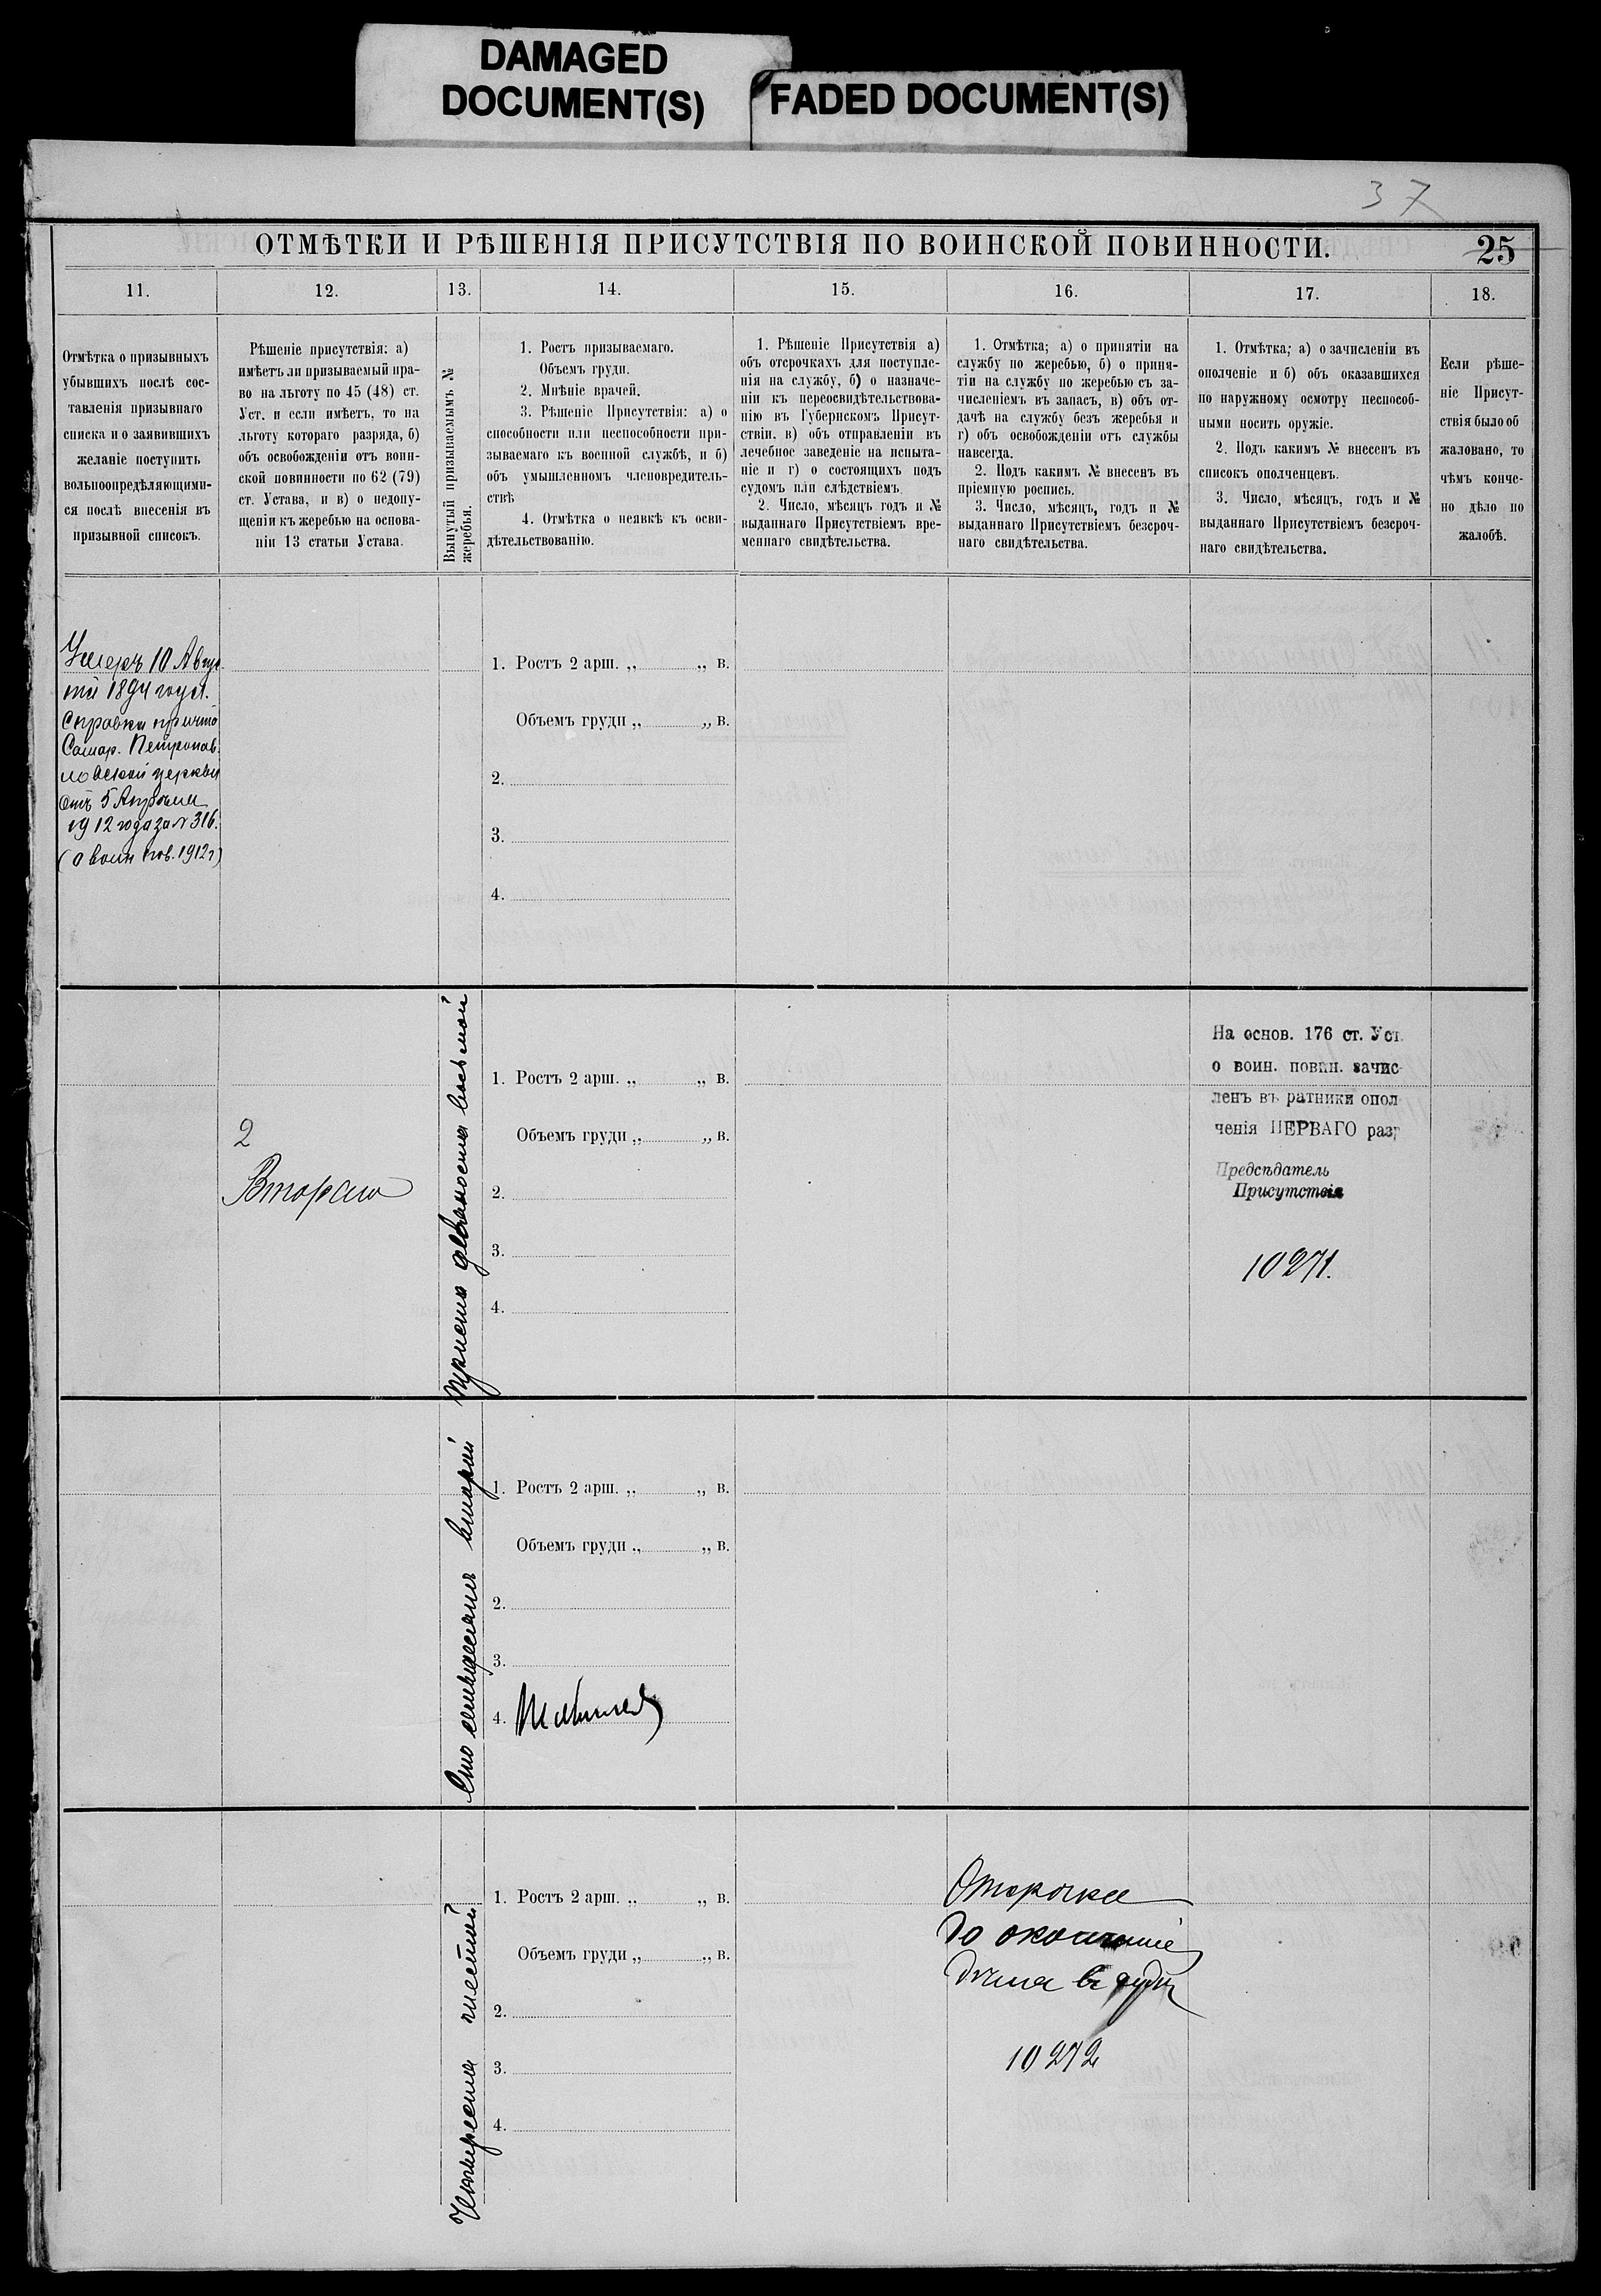 DAMAGED
DOCUMENT(S)
FADED DOCUMENT(S)
37
ОТМѢТКИ И РѢШЕНІЯ ПРИСУТСТВІЯ ПО ВОИНСКОЙ ПОВИННОСТИ.
25
11.
12.
13.
14.
15.
16.
17.
18.
Отмѣтка о призывныхъ
убывшихъ послѣ сос-
тавленія призывнаго
списка и о заявившихъ
желаніе поступить
вольноопредѣляющими-
ся послѣ внесенія въ
призывной списокъ.
Рѣшеніе присутствія: а)
имѣетъ ли призываемый пра-
во на льготу по 45 (48) ст.
Уст. и если имѣетъ, то на
льготу котораго разряда, б)
объ освобожденіи отъ воин-
ской повинности по 62 (79)
ст. Устава, и в) о недопу-
щеніи къ жеребью на основа-
ніи 13 статьи Устава.
Вынутый призываемымъ №
жеребья.
1. Ростъ призываемаго.
Объемъ груди.
2. Мнѣніе врачей.
3. Рѣшеніе Присутствія: а) о
способности или неспособности при-
зываемаго къ военной службѣ, и б)
объ умышленномъ членовредитель-
ствѣ
4. Отмѣтка о неявкѣ къ осви-
дѣтельствованію.
1. Рѣшеніе Присутствія а)
объ отсрочкахъ для поступле-
нія на службу, б) о назначе-
ніи къ переосвидѣтельствова-
нію въ Губернскомъ Присут-
ствіи. в) объ отправленіи въ
лечебное заведеніе на испыта-
ніе и г) о состоящихъ подъ
судомъ или слѣдствіемъ
2. Число, мѣсяцъ годъ и №
выданнаго Присутствіемъ вре-
меннаго свидѣтельства.
1. Отмѣтка; а) о принятіи на
службу по жеребью, б) о приня-
тіи на службу по жеребью съ за-
численіемъ въ запасъ, в) объ от-
дачѣ на службу безъ жеребья и
г) объ освобожденіи отъ службы
навсегда.
2. Подъ какимъ № внесенъ въ
пріемную роспись.
3. Число, мѣсяцъ, годъ и №
выданнаго Присутствіемъ безсроч-
наго свидѣтельства.
1. Отмѣтка; а) о зачисленіи въ
ополченіе и б) объ оказавшихся
по наружному осмотру неспособ-
ными носить оружіе.
2. Подъ какимъ № внесенъ въ
списокъ ополченцевъ.
3. Число, мѣсяцъ, годъ и №
выданнаго Присутствіемъ безсроч-
наго свидѣтельства.
Если рѣше-
ніе Присут-
ствія было об
жаловано, то
чѣмъ конче-
но дѣло по
жалобѣ.
Умеръ 10 Авгус
та 1894 года.
Справка причта
Самар. Петропав
ловской церкви
отъ 5 Апрѣля
1912 года за № 316.
(о воин пов. 1912 г)
1. Ростъ 2 арш. „ „ в.
Объемъ груди „ „ в.
2.
3.
4.
2
Втораго
Триста девяносто восьмой
1. Ростъ 2 арш. „ „ в.
Объемъ груди „ „ в.
2.
3.
4.
На основ. 176 ст. Уст.
о воин. повин. зачис-
ленъ въ ратники опол
ченія ПЕРВАГО разр
Предсѣдатель
Присутствія
10271.
Сто семьдесятъ второй
1. Ростъ 2 арш. „ „ в.
Объемъ груди „ „ в.
2.
3.
4.
Четыреста шестой
1. Ростъ 2 арш. „ „ в.
Объемъ груди „ „ в.
2.
3.
4.
Отсрочка
до окончанія
дѣла въ судѣ
10272